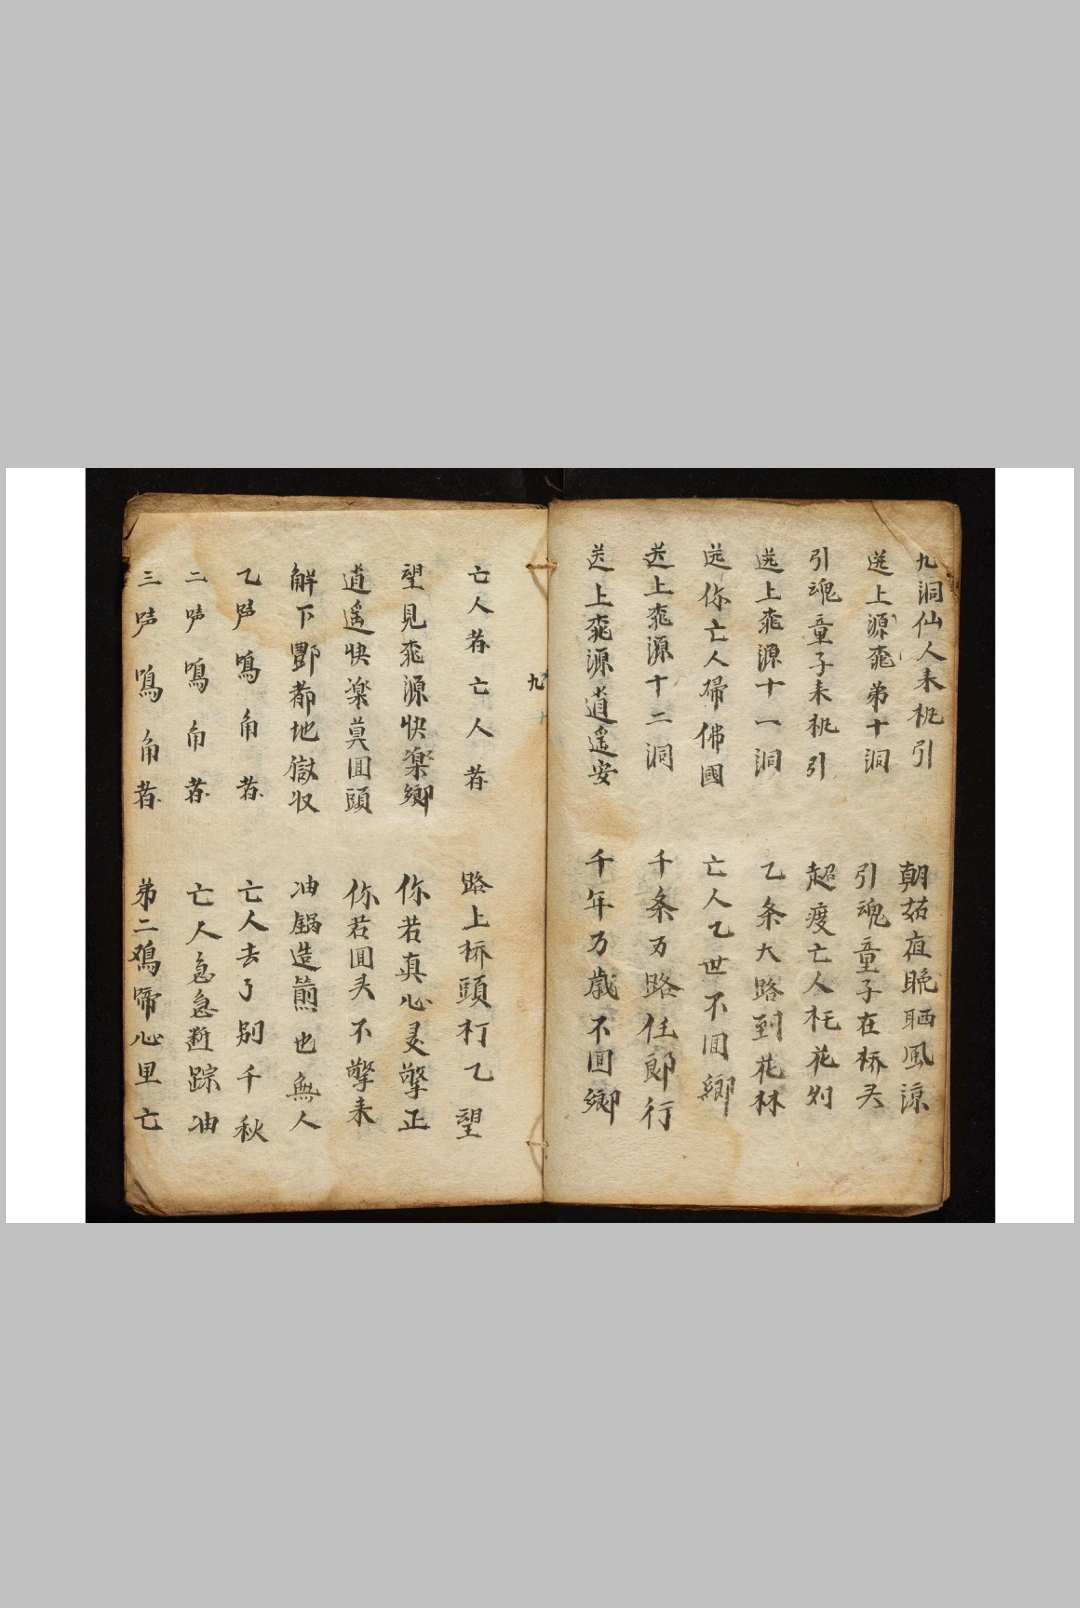 九洞仙人来桃引
朝茹夜晚晒風涼
送上源兆弟十洞
引魂童子在桥头
引魂童子来桃引
超度亡人托花列
送上兆源十一洞
乙条大路到花林
送你亡人歸佛國
亡人乙世不囬鄉
送上兆源十二洞
千条万路任郎行
送上兆源逍遥安
千年万歳不囬鄉
九
亡人存亡人存
路上桥頭打乙望
望見兆源快楽鄉
你若真心灵擎正
逍遥快楽莫囬頭
你若囬头不擎来
解下酆都地獄收
油鍋造煎也無人
乙声鳴角存
亡人去了别千秋
二声鳴角存
亡人急急断踪油
三声鳴角存
弟二鳮啼心里亡